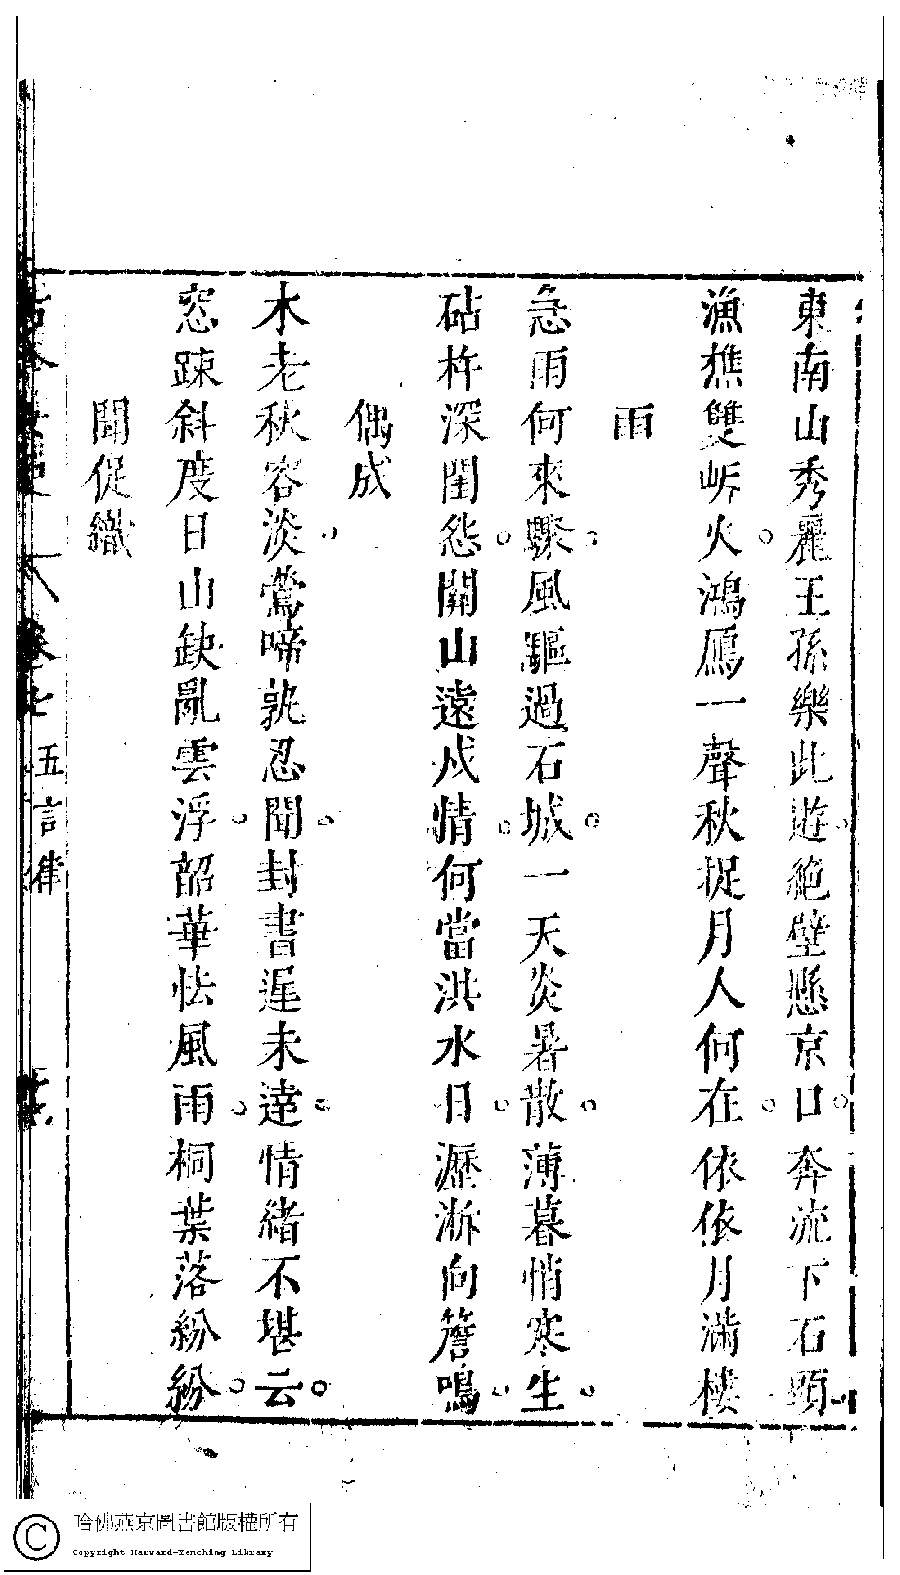 東南山秀麗王孫樂此遊絶壁懸京口奔流下石頭
漁樵雙岍火鴻鴈一聲秋捉月人何在依依月滿樓
雨
急雨何來驟風驅過石城一天炎暑散薄暮悄寒生
砧杵深閨怨關山遠戍情何當洪水日瀝淅向簷鳴
偶成
木老秋容淡鶯啼孰忍聞封書遲未達情緒不堪云
窓踈斜度日山缺亂雲浮韶華怯風雨桐葉落紛紛
聞促織
卷七 五言律
哈佛燕京圖書館版權所有
Copyright Harvard-Yenching Library